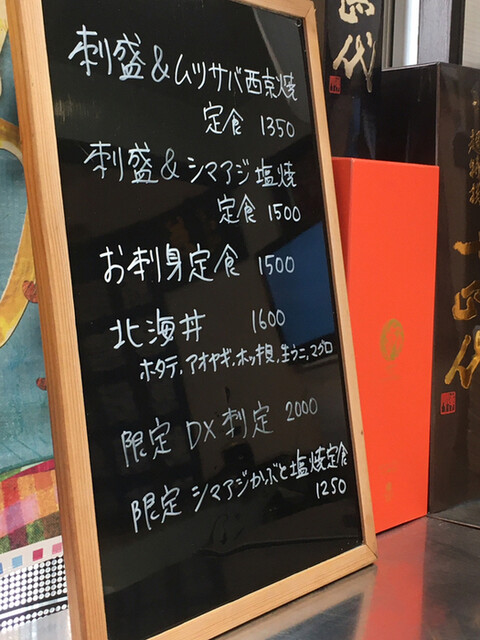 刺盛&ムツサバ西京焼
定食 1350
刺盛&シマアジ塩焼
定食 1500
お刺身定食 1500
北海丼 1600
ホタテ、アオヤギ、ホッキ貝、生ウニ、マグロ
限定 DX刺定 2000
限定 シマアジかぶと塩焼定食
1250